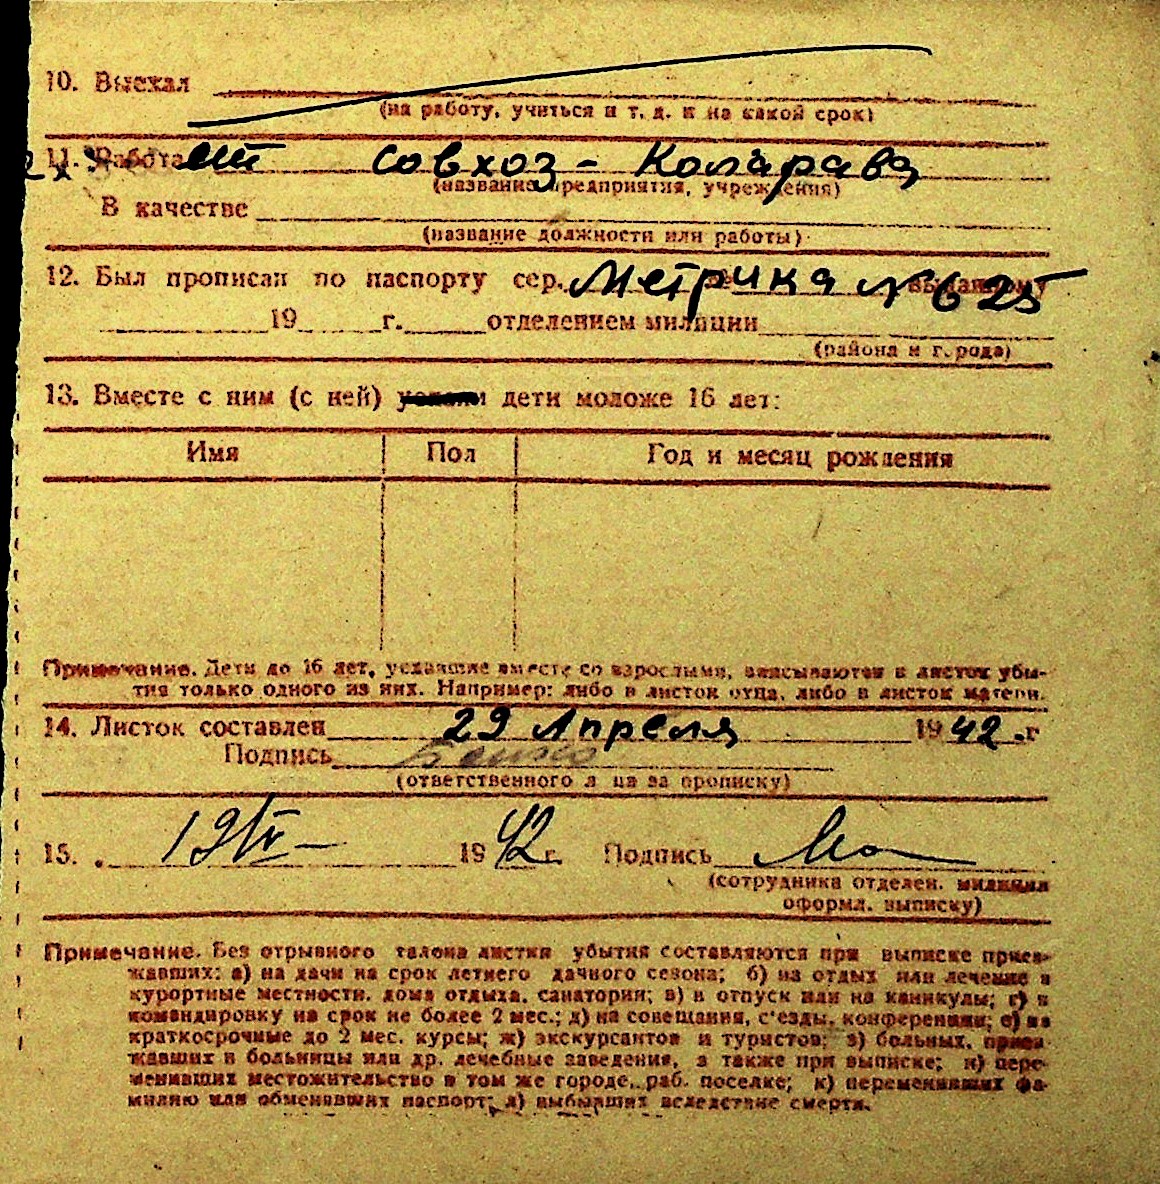 10. Выехал
(на работу, учиться и т. д. и на какой срок)
11. Работа совхоз - Коларава
(название предприятия, учреждения)
В качестве
(название должности или работы)
12. Был прописан по паспорту сер. Метрика № 625 выданному
19 г. отделением милиции
(района и города)
13. Вместе с ним (с ней) дети моложе 16 лет:
Имя Пол Год и месяц рождения
Примечание. Дети до 16 лет, уехавшие вместе со взрослыми, вписываются в листок убы-
тия только одного из них. Например: либо в листок отца, либо в листок матери.
14. Листок составлен 29 Апреля 1942 г
Подпись
(ответственного л ца за прописку)
15. 19/V- 1942 г. Подпись
(сотрудника отделен. милиции
оформл. выписку)
Примечание. Без отрывного талона листки убытия составляются при выписке приез-
жавших: а) на дачи на срок летнего дачного сезона; б) на отдых или лечение в
курортные местности, дома отдыха, санатории; в) в отпуск или на каникулы; г) в
командировку на срок не более 2 мес.; д) на совещания, с'езды, конференции; е) на
краткосрочные до 2 мес. курсы; ж) экскурсантов и туристов; з) больных, приез-
жавших в больницы или др. лечебные заведения, а также при выписке; и) пере-
менивших местожительство в том же городе, раб. поселке; к) переменивших фа-
милию или обменявших паспорт; л) выбывших вследствие смерти.